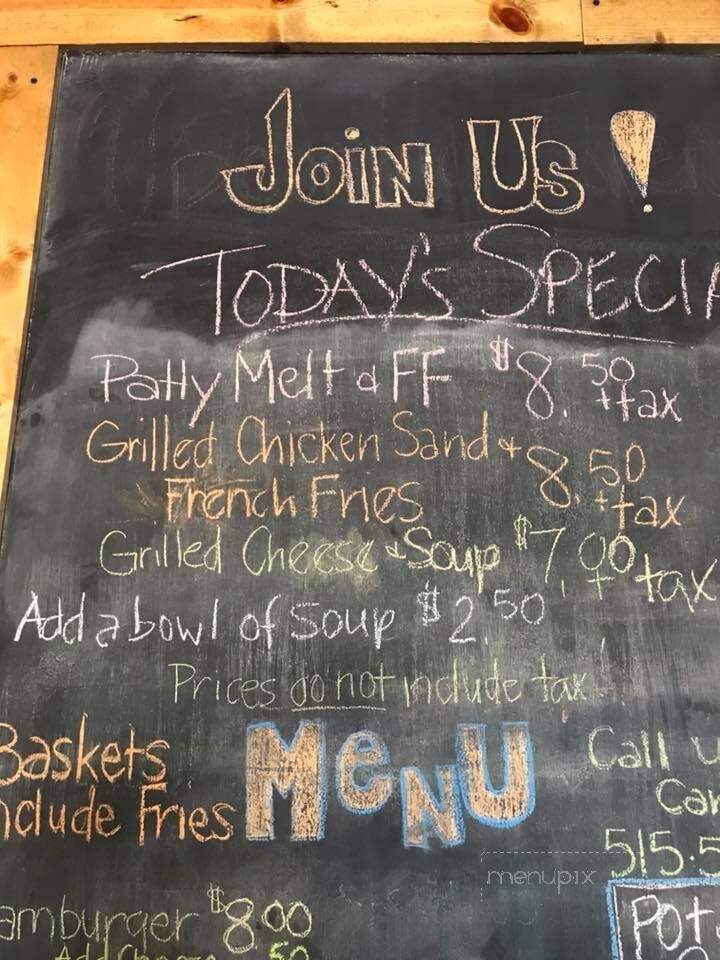 JOIN US!
TODAY'S SPECIA
Patty Melt & FF $8.50 +tax
Grilled Chicken Sand + 8.50
French Fries +tax
Grilled Cheese & Soup $7.00 + tax
Add a bowl of Soup $2.50
Prices do not include tax
Baskets
nclude Fries
MENU
Call u
Car
515.5
amburger $8.00
Add Cheese .50
Pot
menupix